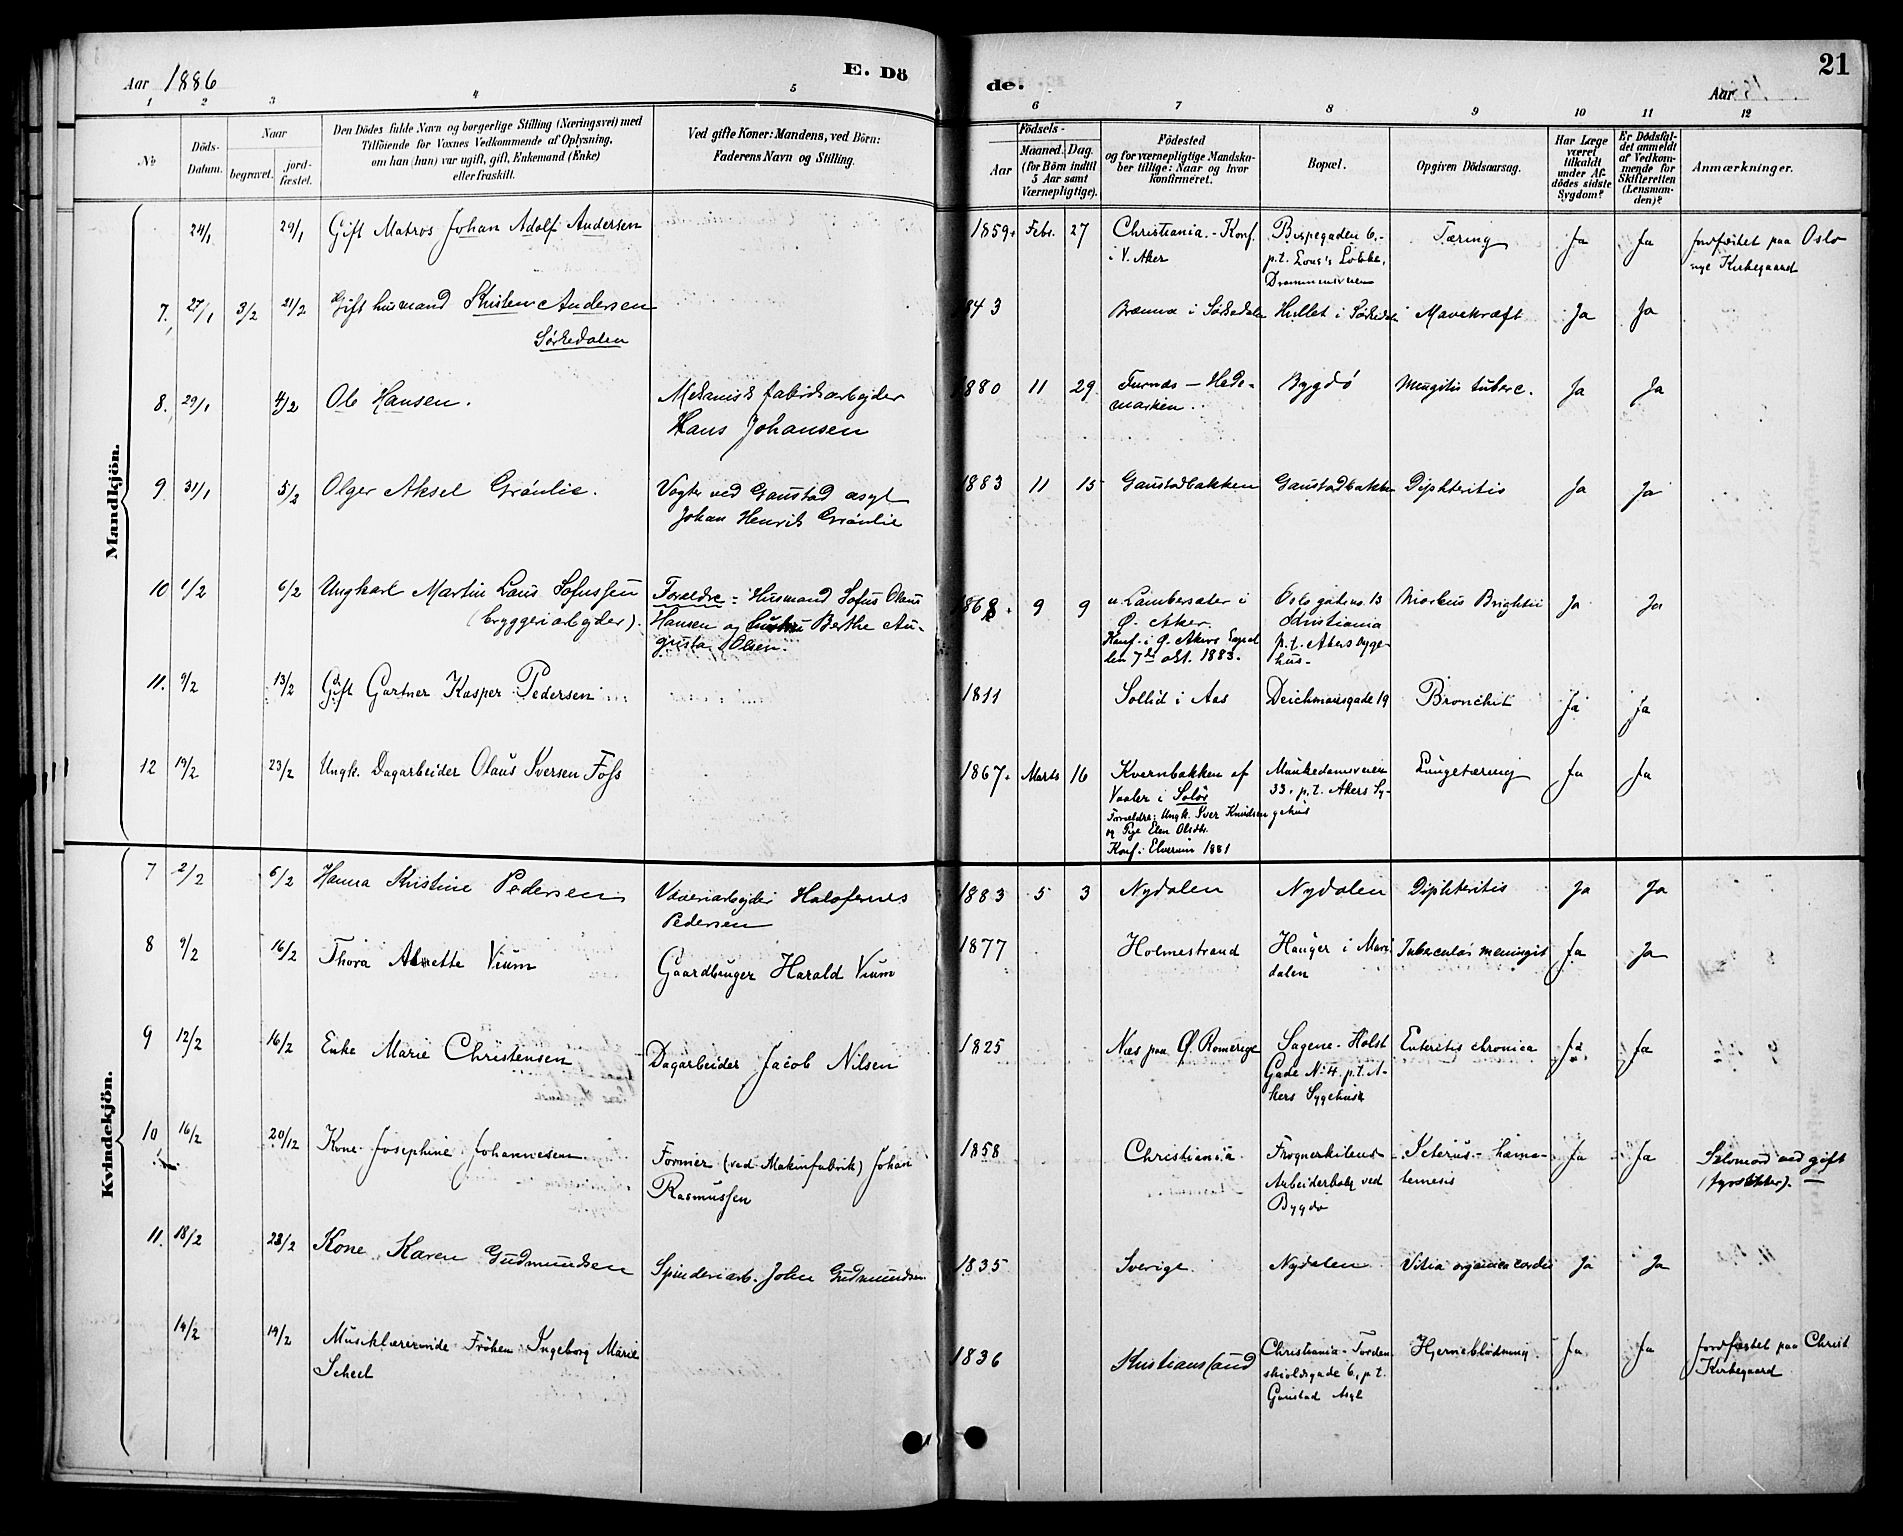 Aar 1886
E. Dö
de.
Aar
21
1 2 3 4 5 6 7 8 9 10 11 12
No
Döds-
Datum.
Naar
begravet.
jord-
fæstet.
Den Dödes fulde Navn og borgerlige Stilling (Næringsvei) med
Tilföiende for Voxnes Vedkommende af Oplysning,
om han (hun) var ugift, gift, Enkemand (Enke)
eller fraskilt.
Ved gifte Koner: Mandens, ved Börn:
Faderens Navn og Stilling.
Födsels-
Aar
Maaned. Dag.
(for Börn indtil
5 Aar samt
Værnepligtige).
Födested
og for værnepligtige Mandska-
ber tillige: Naar og hvor
konfirmeret.
Bopæl.
Opgiven Dödsaarsag.
Har Læge
været
tilkaldt
under Af-
dödes sidste
Sygdom?
Er Dödsfal-
det anmeldt
af Vedkom-
mende for
Skifteretten
(Lensman-
den)?
Anmærkninger.
Mandkjön.
24/1 29/1 Gift Matros Johan Adolf Andersen 1859. Febr. 27 Christiania. - Konf. Bispegaden 6, - Tæring Ja Ja jordfæstet paa Oslo
i V. Aker p.t. Løkke, nye Kirkegaard
Drammensveien
7. 27/1 3/2 21/2 Gift husmand Kristen Andersen 1843 i Sørkedalen Hullet i Sørkedal Mavekræft Ja Ja
Sørkedalen
8. 29/1 4/2 Ole Hansen. Mekanisk fabrikarbejder 1880 11 29. Furnæs - Hede- Bygdö tuberc. Ja Ja
Hans Johansen marken.
9 31/1 5/2 Olger Aksel Grönlie. Vogter ved Gaustad asyl 1883 11 15 Gaustadbakken Gaustadbakken Diphteritis Ja Ja
Johan Henrik Grönlie
10 1/2 6/2 Ungkarl Martin Laus Sofussen Forældre: Husmand Sofus Olaus 1868. 9 9 u. Lambersæter i Oslo gade no. 13 Morbus Brightii Ja Ja
(bryggeriarbejder). Hansen og hustru Berthe Au- Ø. Aker. Kristiania
gusta Olsen. Konf. i Ø. Akers p.t. Akers syge-
7de okt. 1883. hus.
11. 9/2 13/2 Gift Gartner Kasper Pedersen 1811 Sollid i Aas Deichmansgade 19 Bronchit Ja Ja
12 19/2 23/2 Ungk. Dagarbeider Olaus Iversen Foss 1867. Marts 16 Kvernbakken af Munkedamsveien Lungetæring Ja Ja
Vaaler i Solör 33, p.t. Akers Sy-
Forældre: Ungk. Iver Knudsen gehus
og Pige Elen Olsdtr.
Konf: Elverum 1881
Kvindekjön.
7 2/2 6/2 Hanna Kristine Pedersen Væveriarbejder Holofernes 1883 5 3 Nydalen Nydalen Diphteritis Ja Ja
Pedersen
8 9/2 16/2 Thora Vium Gaardbruger Harald Vium 1877 Holmestrand Hauger i Mari- Tuberculös meningit Ja Ja
dalen
9 12/2 16/2 Enke Marie Christensen Dagarbeider Jacob Nilsen 1825 Nes paa Ø. Romerige Sagene - Holst Enteritis chronica Ja Ja
Gade No. 4. p.t. A-
kers Sygehus
10 16/2 20/12 Kone Josephine Johannesen Former (ved Maskinfabrik) Johan 1858 Christiania Frognerkilens Icterus - hæma- Ja Ja Selvmord ved gift
Rasmussen Arbeiderbolig ved temesis (fyrstikker).
Bygdø
11. 18/2 23/2 Kone Karen Gudmundsen Spinderiarb. John Gudmundsen 1835 Sverige Nydalen Vitia organica cordis Ja Ja
14/2 19/2 Musiklærerinde Fröken Ingeborg Marie 1836 Kristianssand Christiania - Torden- Hjerneblödning Ja Ja jordfæstet paa Christ
Scheel skioldsgade 6, p.t. Kirkegaard
Gaustad Asyl